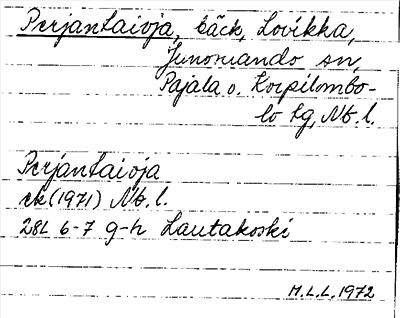 Perjantaioja, bäck, Lovikka,
Junosuando sn,
Pajala o. Korpilombo-
lo tg, Nb. l.
Perjantaioja
ek (1971) Nb. l.
28L 6-7 g-h Lautakoski
M.L.L. 1972